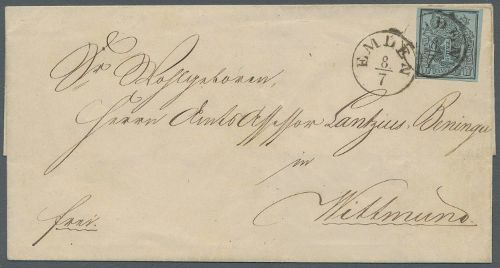 EMDEN
8/7
Sr Wohlgeboren,
Herrn Amts Assessor Lantzius-Beninga
in
frei.
Wittmund.